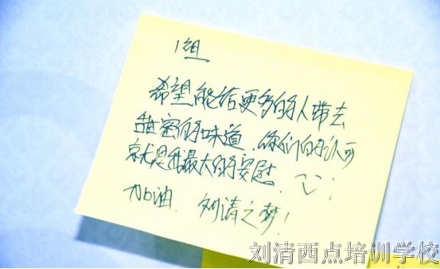 1组
希望能给更多的人带去
甜蜜的味道,你们的认可
就是我最大的安慰.
加油. 刘清之梦!
刘清西点培训学校